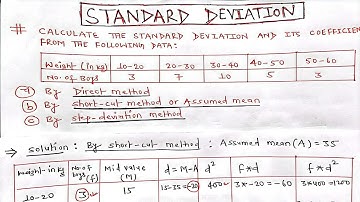 STANDARD DEVIATION
# CALCULATE THE STANDARD DEVIATION AND ITS COEFFICIENT
FROM THE FOLLOWING DATA:
Weight (in kg) 10-20 20-30 30-40 40-50 50-60
No. of Boys 3 7 10 5 3
a) By Direct method
b) By short-cut method or Assumed mean
c) By step-deviation method
→ Solution: By short-cut method: Assumed mean (A) = 35
Weight-in kg No. of Boys (f) Mid value (M) d = M-A d² f*d f*d²
10-20 3 15 15-35=-20 400 3*-20=-60 3*400=1200